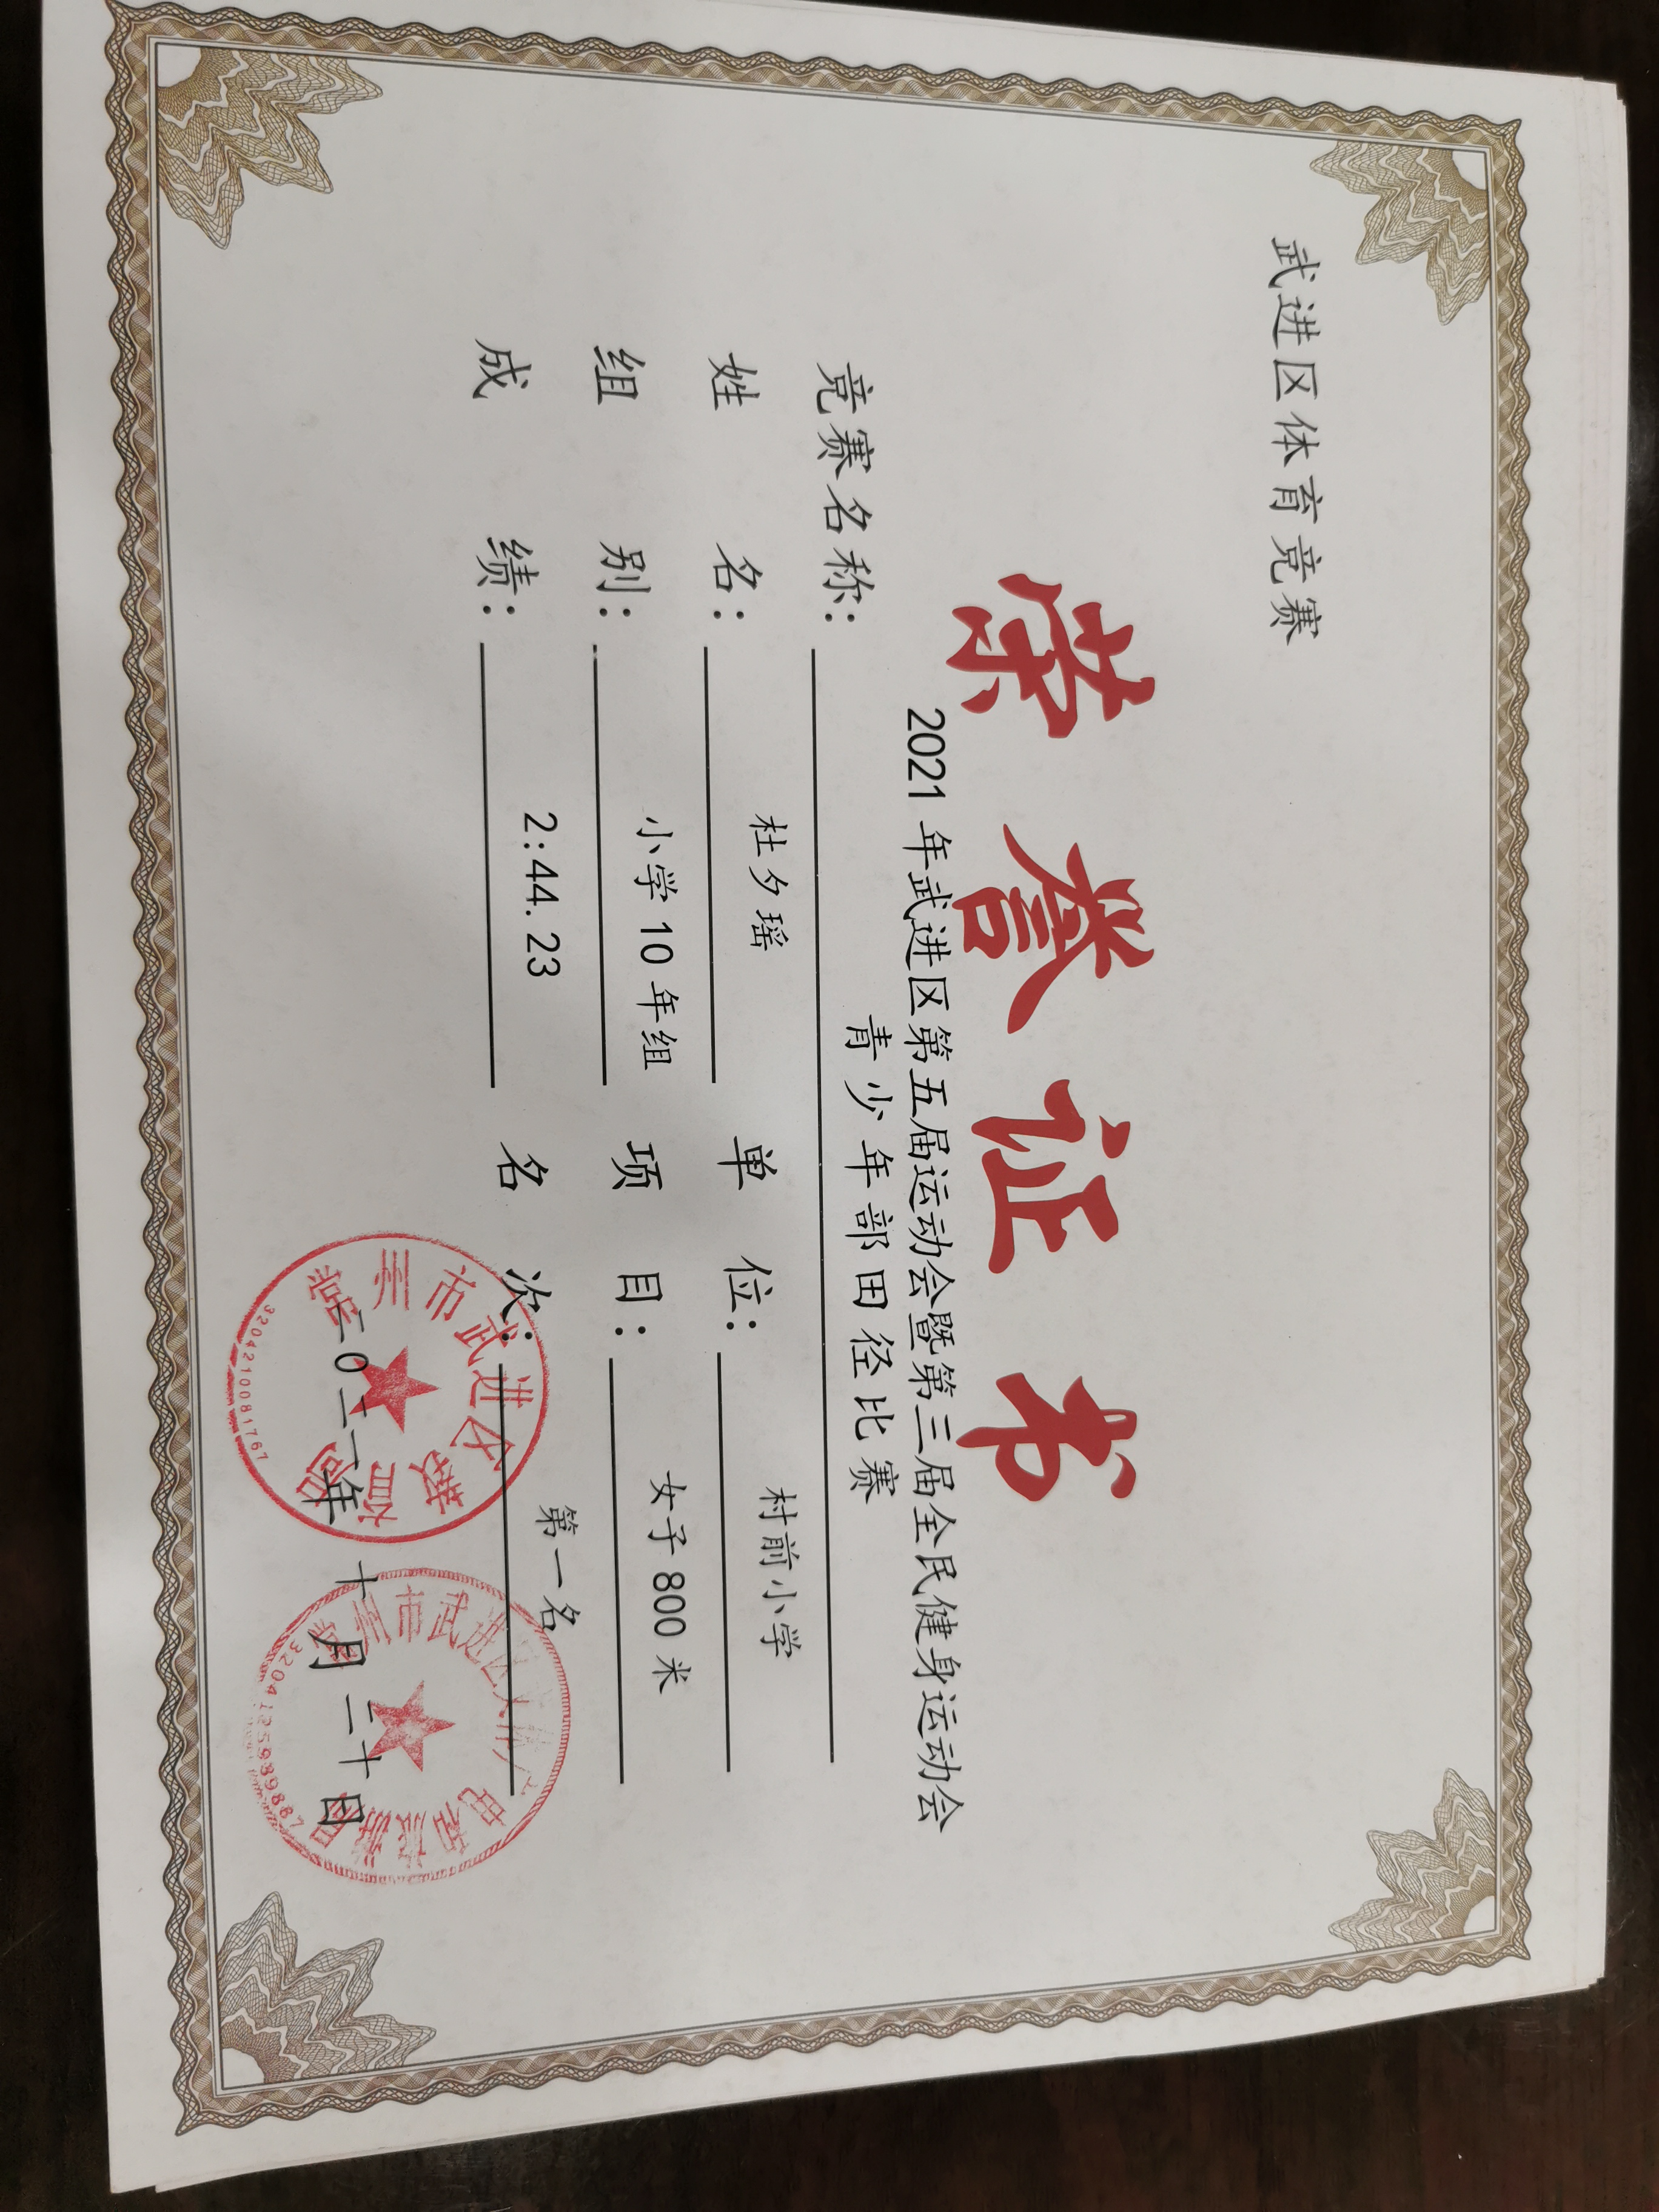 武进区体育竞赛
荣誉证书
2021年武进区第五届运动会暨第三届全民健身运动会
竞赛名称：青少年部田径比赛
姓名：杜夕瑶 单位：村前小学
组别：小学10年组 项目：女子800米
成绩：2:44.23 名次：第一名
二〇二一年十月二十日
常州市武进区教育局
3204210081767
常州市武进区文体广电和旅游局